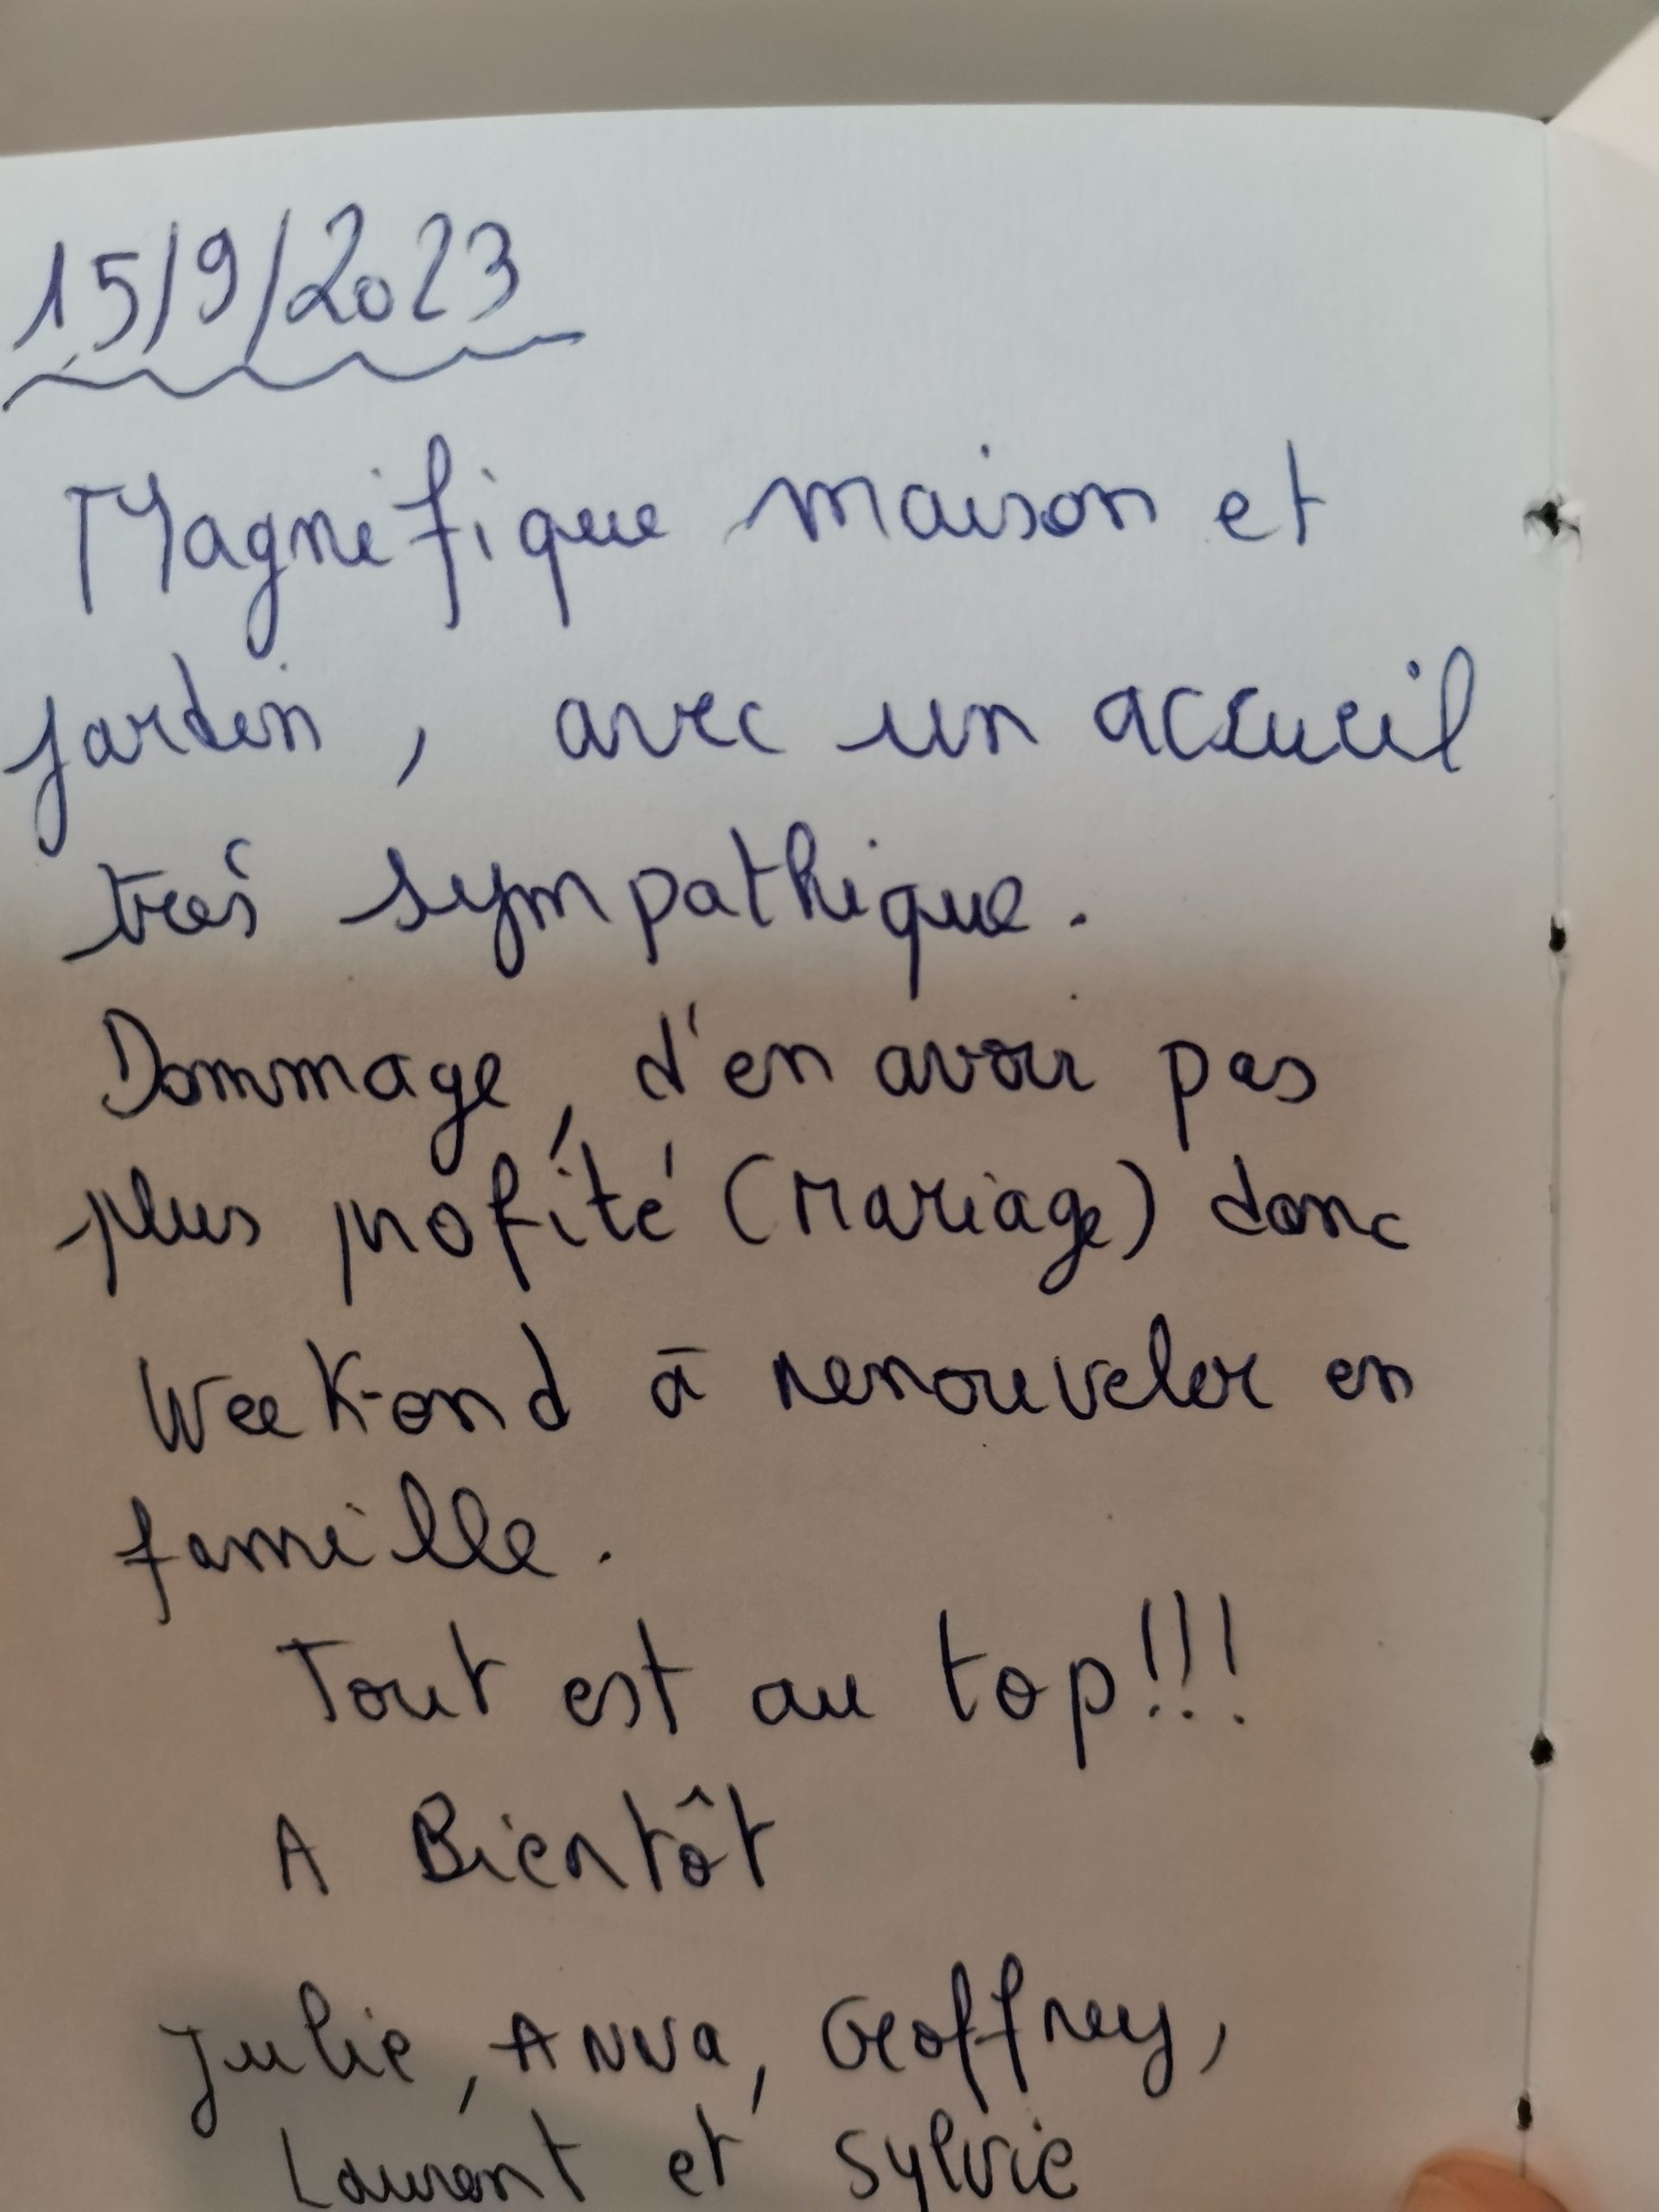 15/9/2023
Magnifique maison et
jardin, avec un accueil
très sympathique.
Dommage, d'en avoir pas
plus profité (Mariage) donc
Week-end à renouveler en
famille.
Tout est au top!!!
A Bientôt
Julie, ANNa, Geoffrey,
Laurent et Sylvie